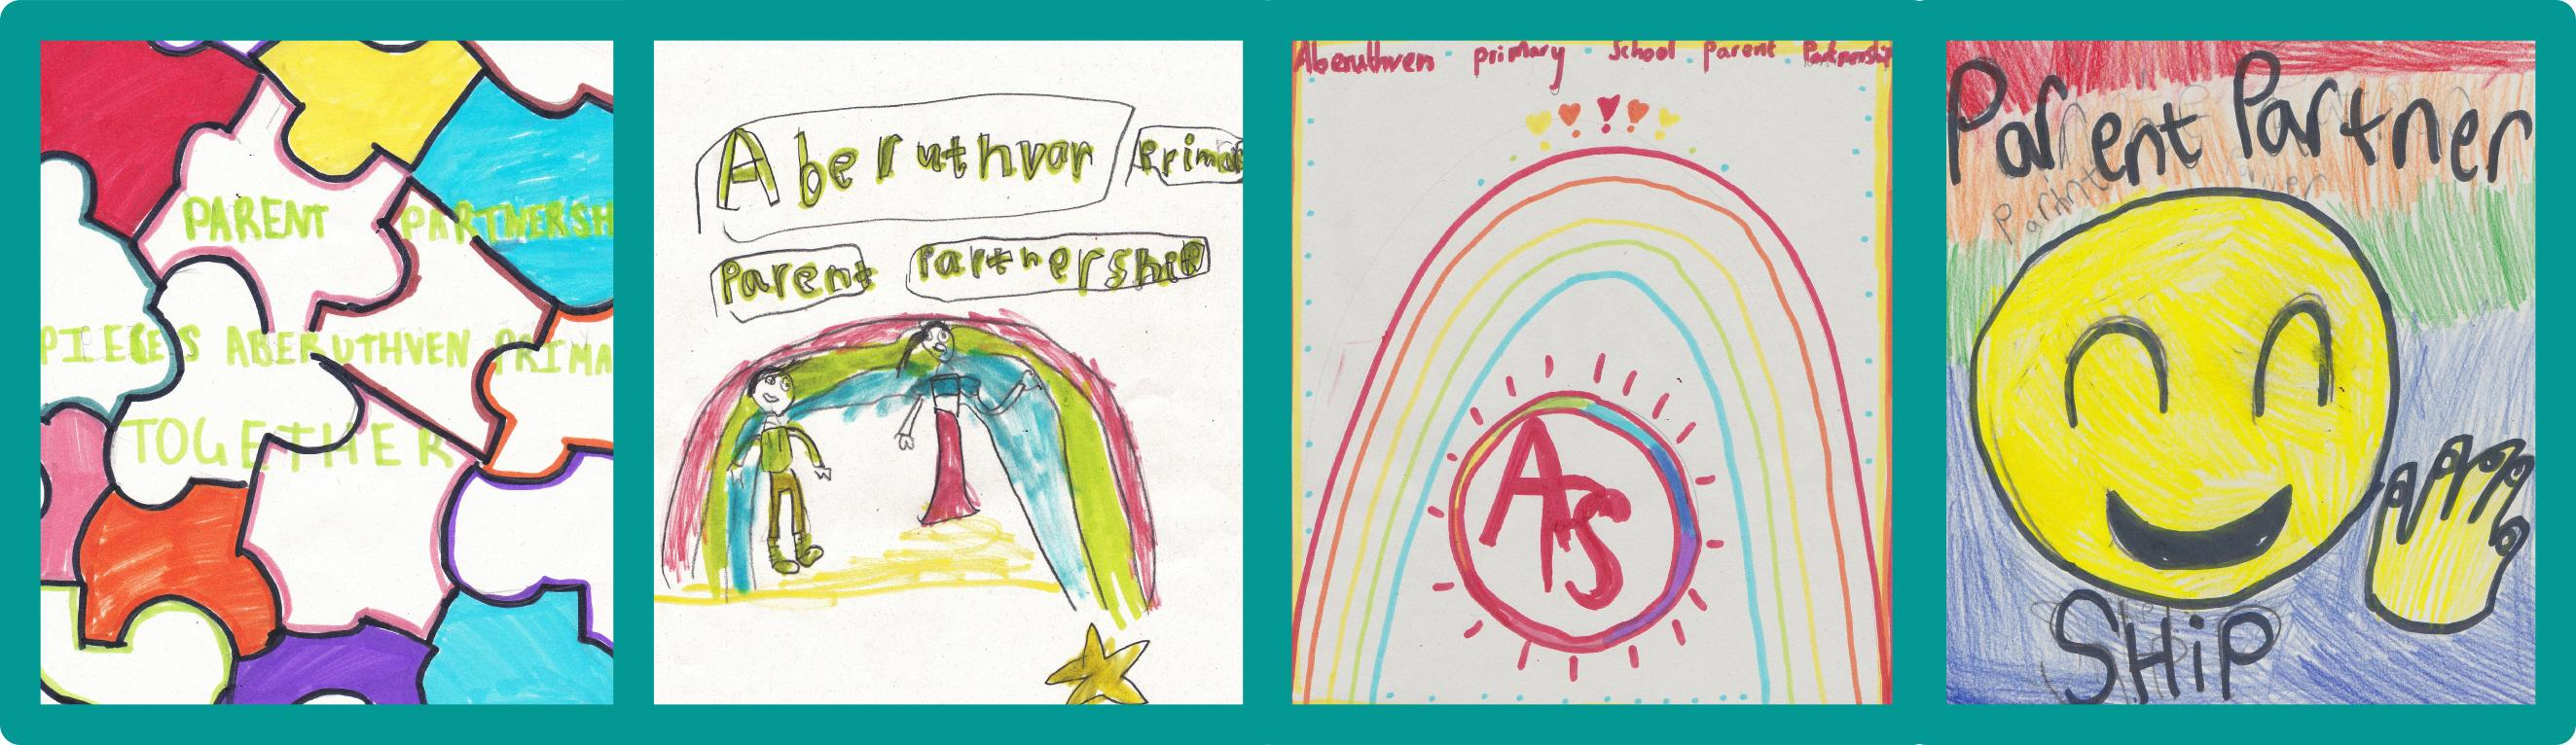 PARENT PARTNERSH
PIECES ABERUTHVEN PRIMA
TOGETHER
Aberuthvan Primar
Parent Partnership
Aberuthven primary School Parent Partnership
AS
Parent Partner
SHiP